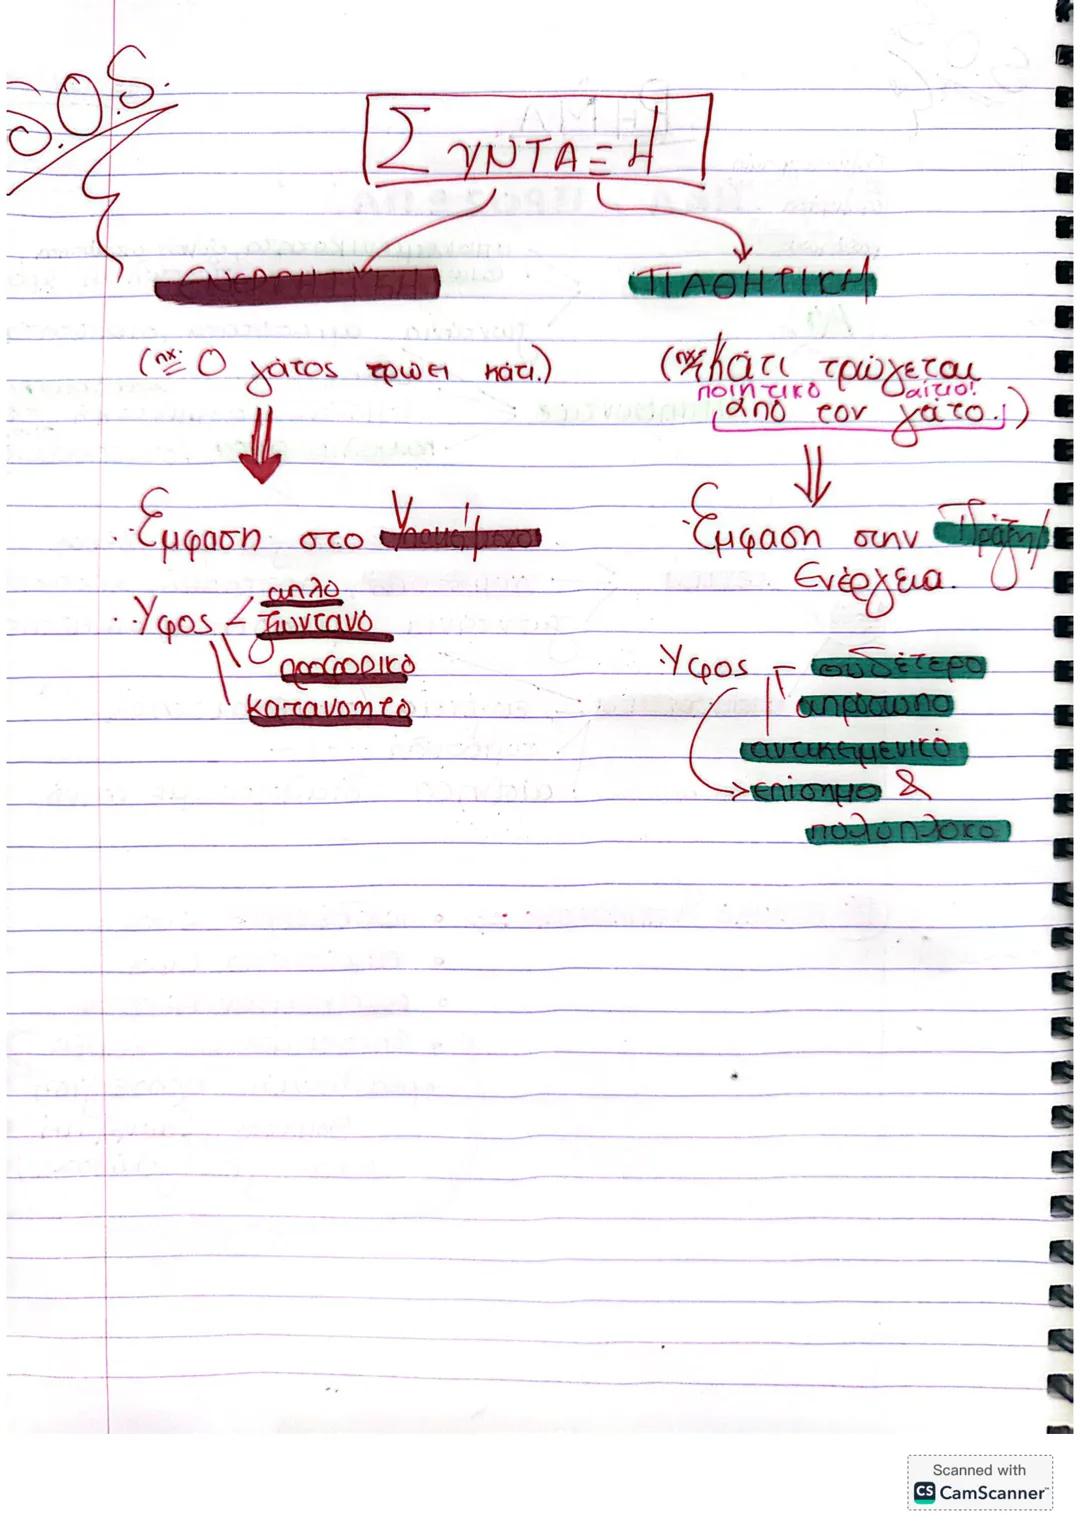 S.O.S.
ΣΥΝΤΑΞΗ
ΕΝΕΡΓΗΤΙΚΗ
(πχ: Ο γάτος τρώει κάτι.)
Έμφαση στο Υποκείμενο
· Ύφος
απλό
ζωντανό
προφορικό
κατανοητό
ΠΑΘΗΤΙΚΗ
(πχ: Κάτι τρώγεται
ποιητικό αίτιο!
από τον γάτο.)
· Έμφαση στην Πράξη/
Ενέργεια.
· Ύφος
ουδέτερο
απρόσωπο
αντικειμενικό
επίσημο &
πολύπλοκο
Scanned with
CS CamScanner